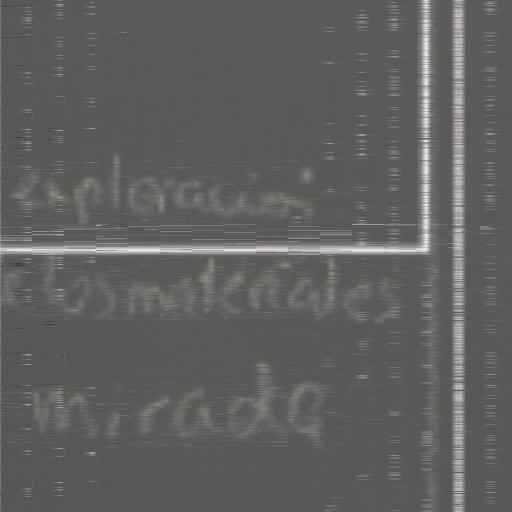 exploracion
los materiales
mirada